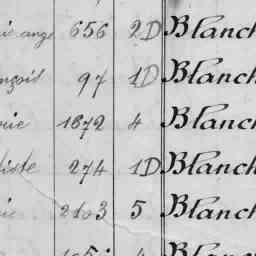 ange 656 2D Blanch
nçois 97 1D Blanch
rie 1872 4 Blanch
tiste 274 1D Blanch
2103 5 Blanch
4 Blanc